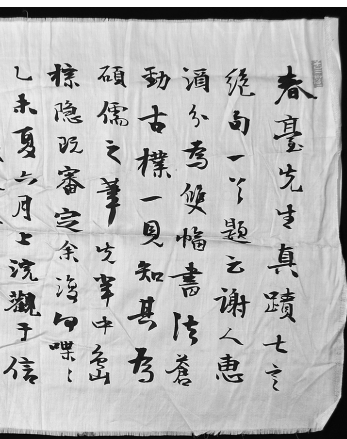 春臺先生真蹟七言
絶句一以題云謝人惠
酒分為雙幅書法蒼
勁古樸一見知其為
碩儒之筆先輩中島
棕隐既審定余復何喋〻
乙未夏六月上浣觀于信